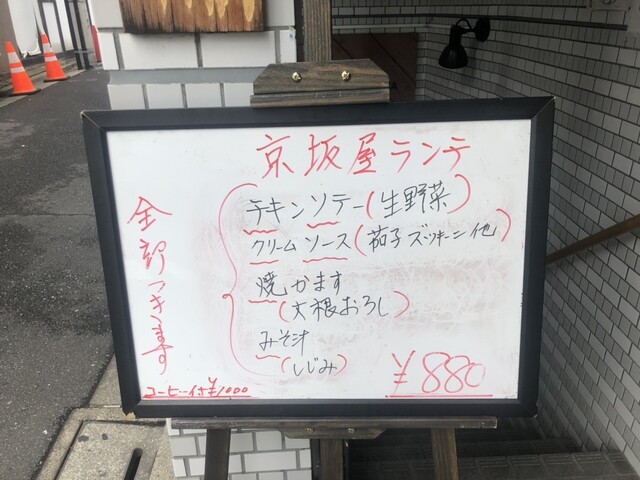 京坂屋ランチ
チキンソテー(生野菜)
クリームソース(茄子ズッキーニ他)
焼かます
(大根おろし)
みそ汁
(しじみ)
全部つきます
¥880
コーヒー付¥1000